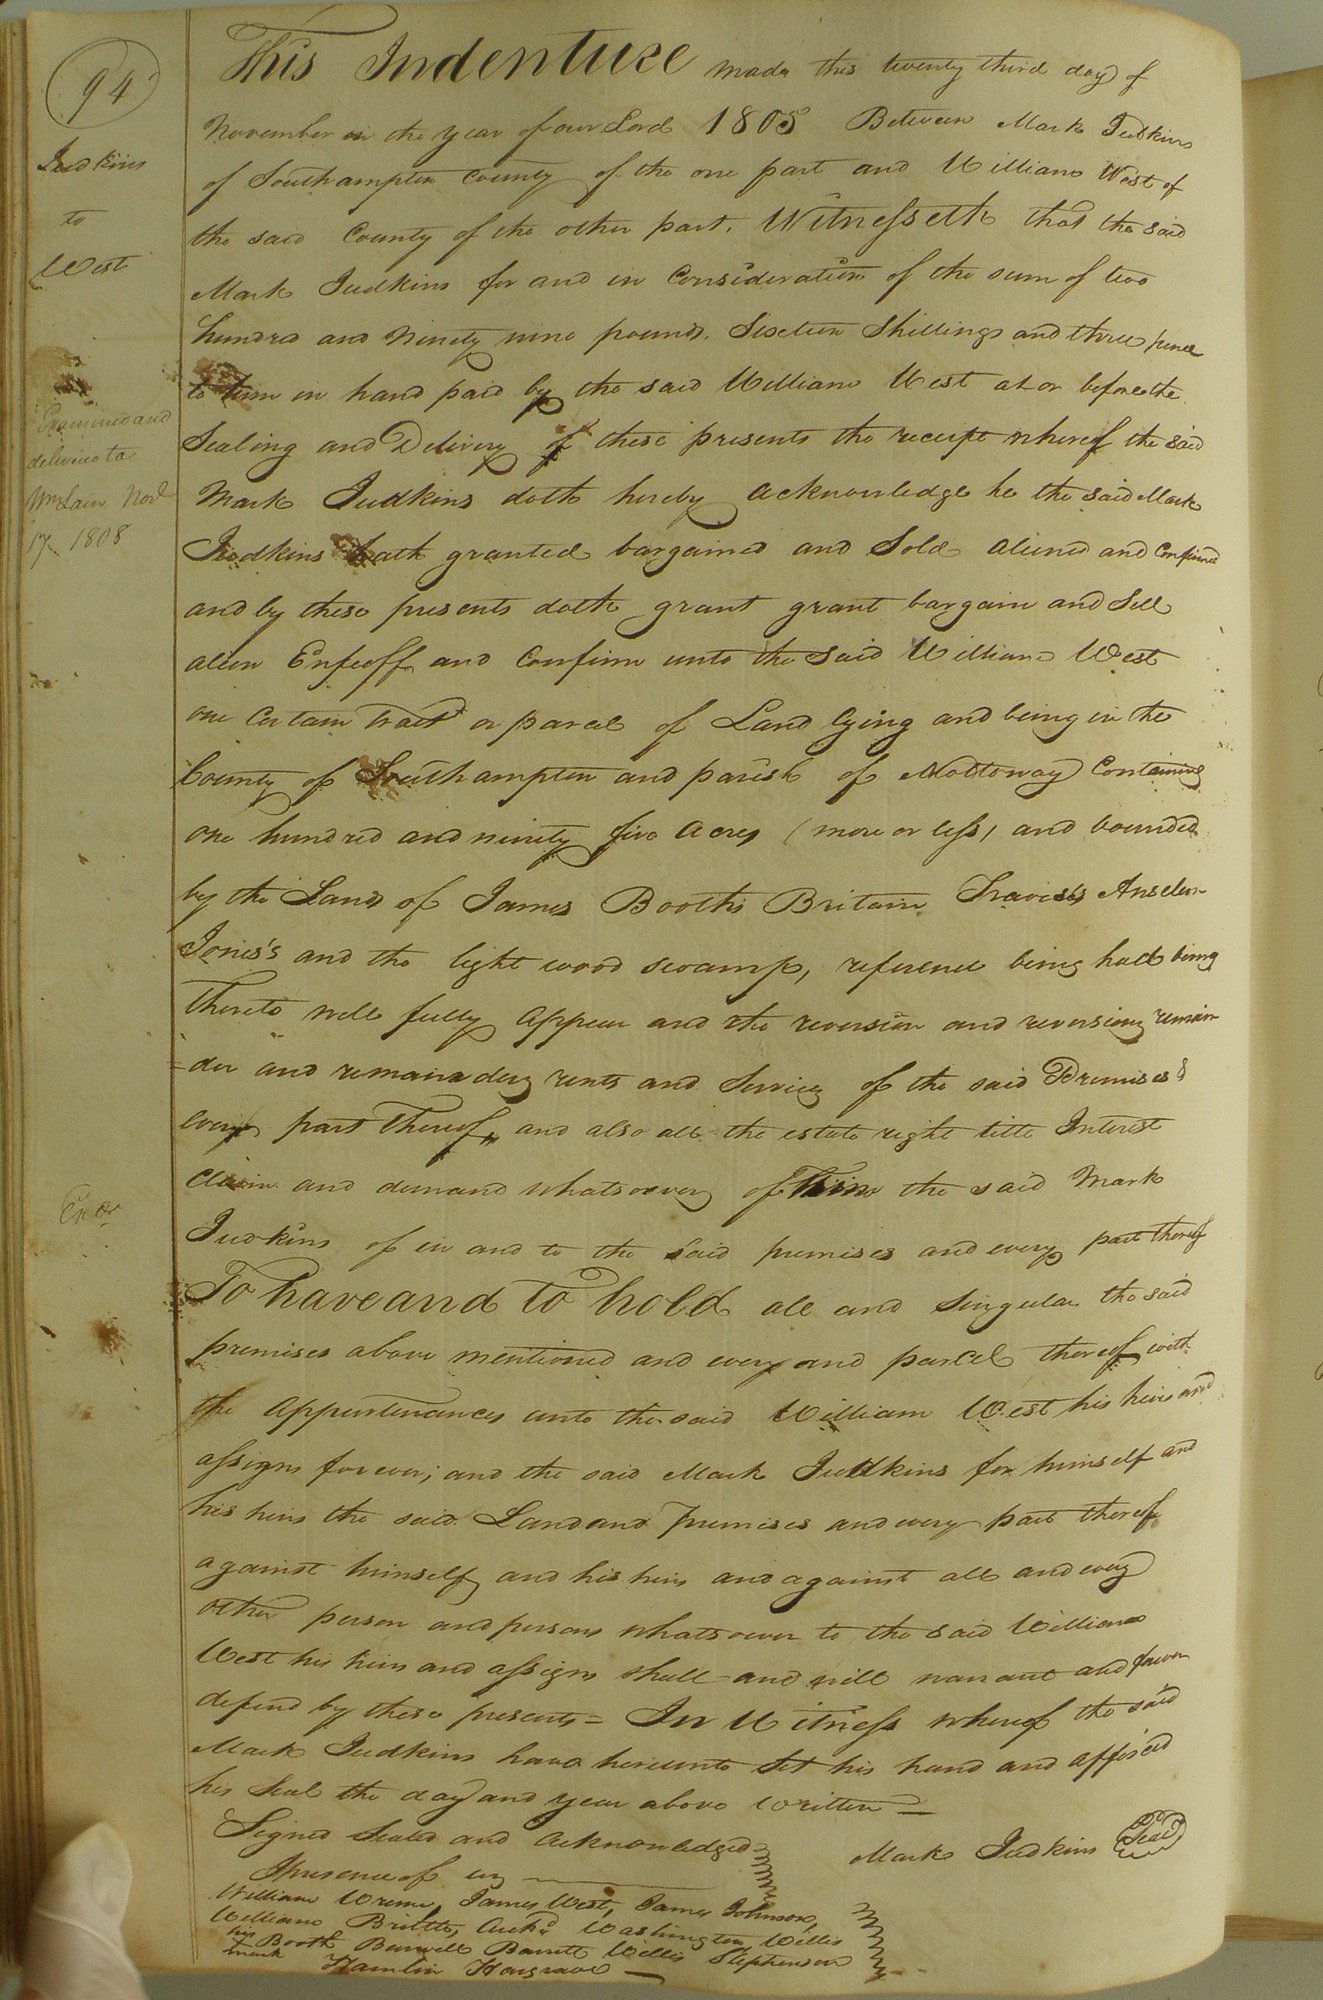 94
Judkins
to
West
Examined and
delivered to
Wm Lain Novr
17 1808
Exor
This Indenture made this twenty third day of
November in the year of our Lord 1805 Between Mark Judkins
of Southampton County of the one part and William West of
the said County of the other part. Witnesseth that the said
Mark Judkins for and in Consideration of the sum of two
hundred and Ninety nine pounds. Sixteen Shillings and three pence
to him in hand paid by the said William West at or before the
Sealing and Delivery of these presents the receipt whereof the said
Mark Judkins doth hereby acknowledge he the said Mark
Judkins hath granted bargained and Sold aliened and Confirmed
and by these presents doth grant grant bargain and Sell
alien Enfeoff and Confirm unto the Said William West
one Certain tract or parcel of Land lying and being in the
County of Southampton and parish of Nottoway Containing
one hundred and ninety five Acres (more or less) and bounded
by the Lands of James Booth's Britain Travis's Anselm
Jones's and the light wood swamp, reference being had being
thereto will fully Appear and the reversion and reversions remain
=der and remainders rents and Services of the said Premises &
every part thereof, and also all the estate right title Interest
Claim and demand whatsoever of him the said Mark
Judkins of in and to the Said premises and every part thereof
To have and to hold all and Singular the said
premises above mentioned and every and parcel thereof with
the Appurtenances unto the said William West his heirs and
assigns forever; and the said Mark Judkins for himself and
his heirs the said Land and Premises and every part thereof
against himself and his heirs and against all and every
other person and persons whatsoever to the said William
West his heirs and assigns shall and will warrant and forever
defend by these presents = In Witness whereof the said
Mark Judkins have hereunto Set his hand and affixed
his Seal the day and year above written =
Signed Sealed and Acknowledged
Mark Judkins Seal
Presence of us
William James West, James Johnson,
William Brittle, Ackd. Washington Willis
his Booth Burwell Barrett Willis Stephenson
mark Hamlin Hargrave